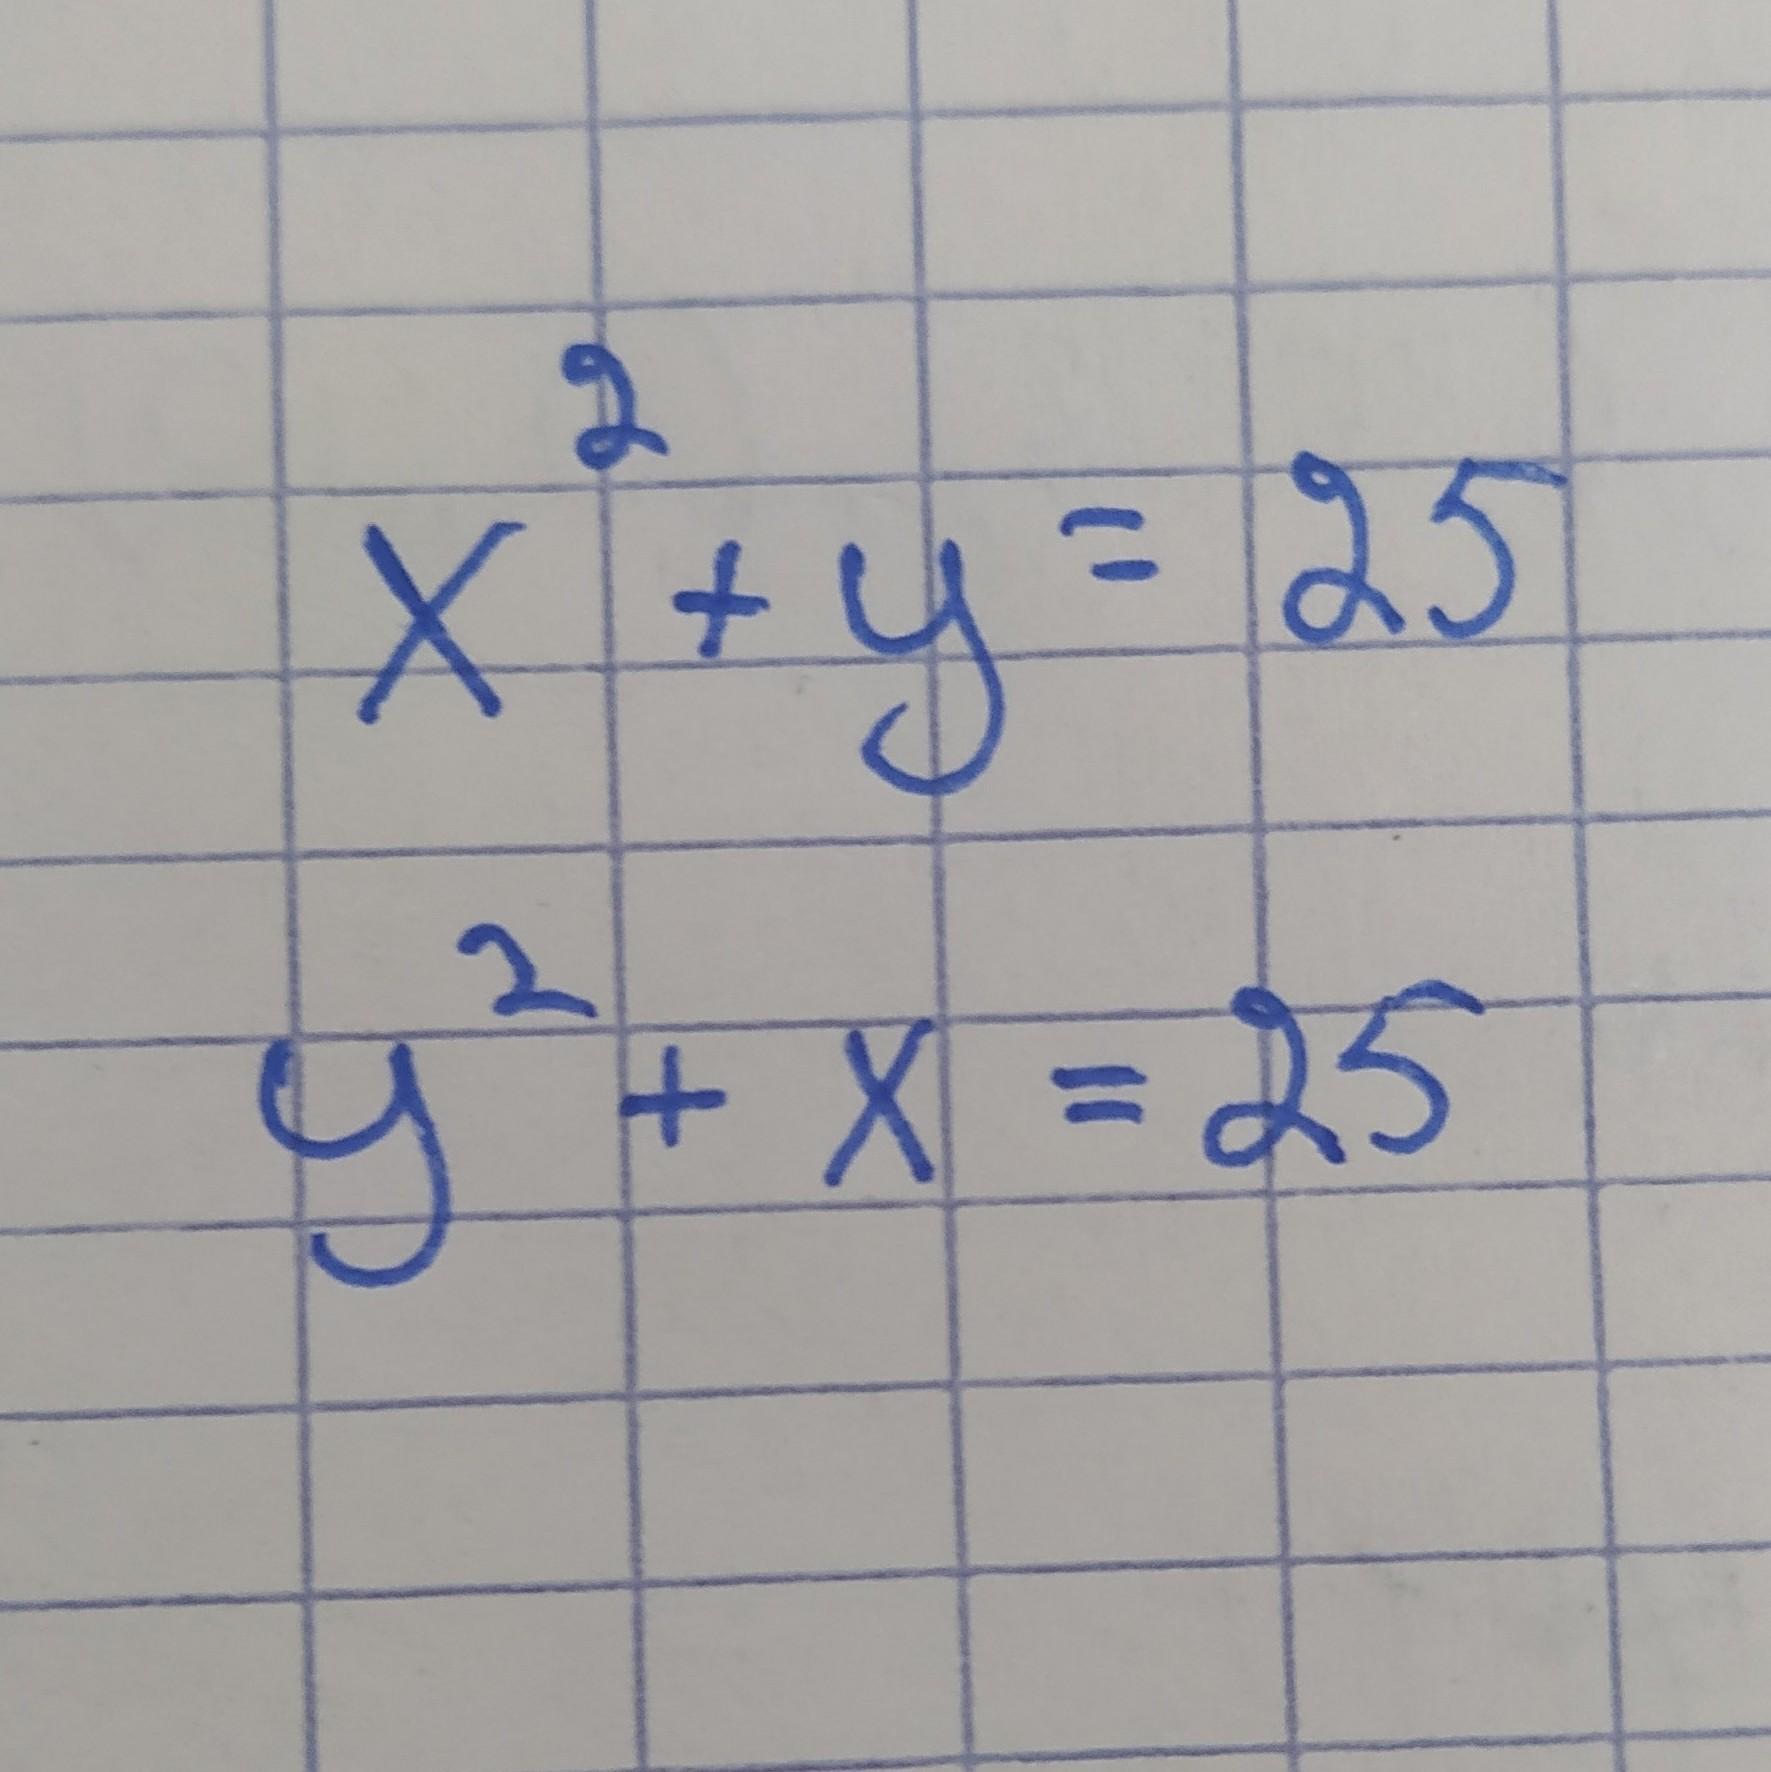 x² + y = 25
y² + x = 25